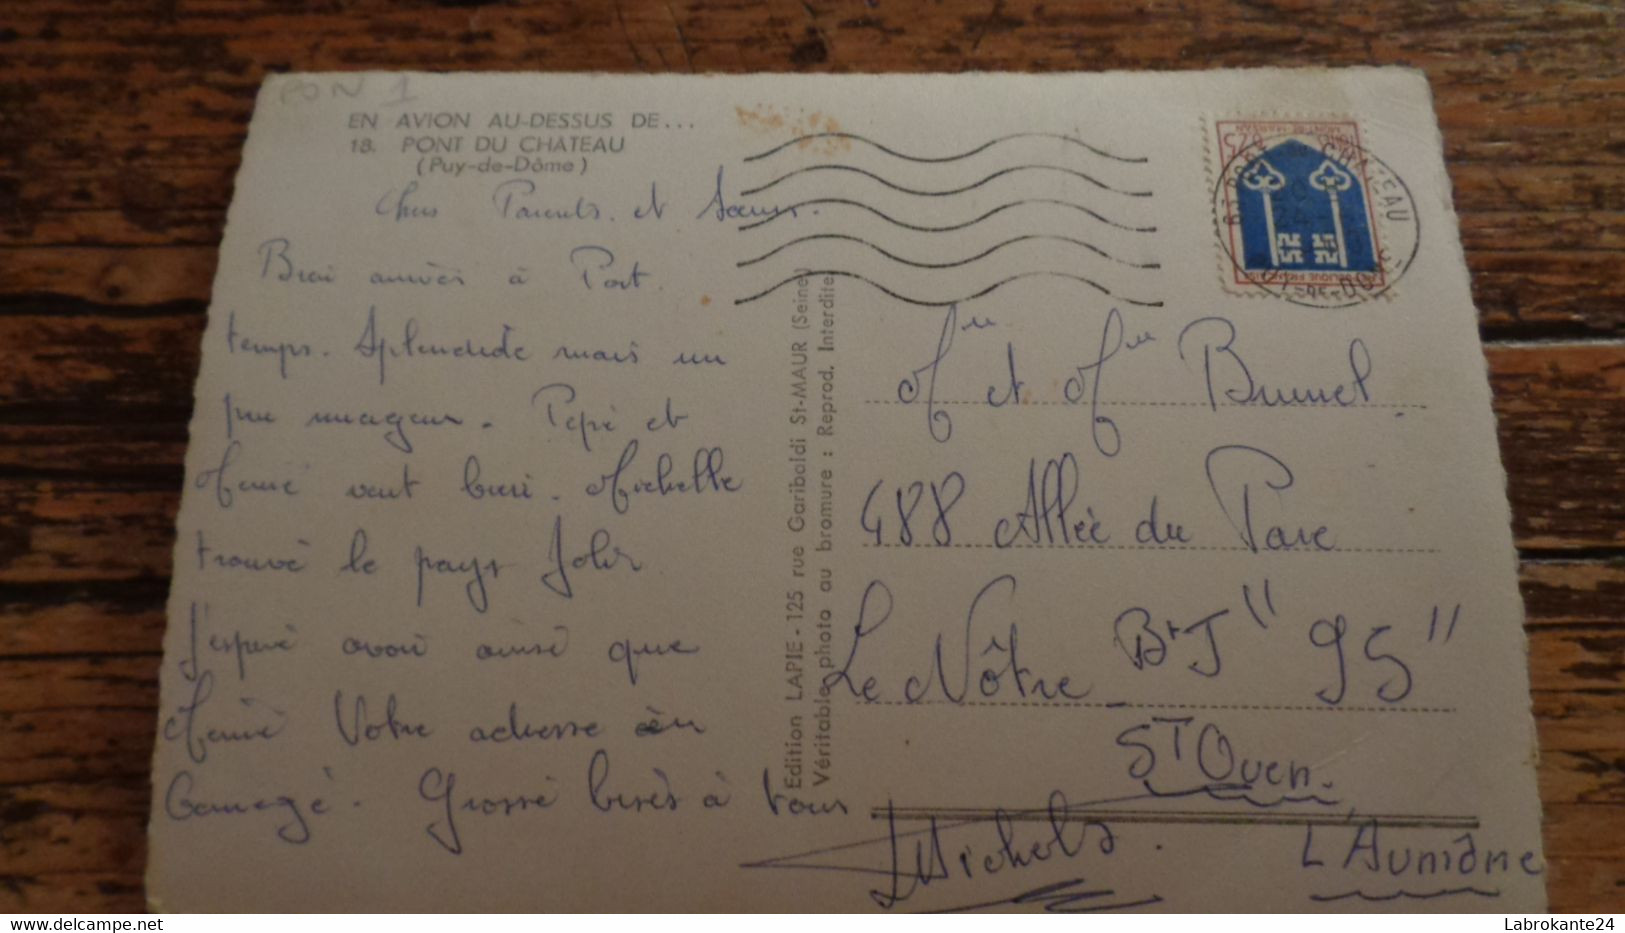 PON 1
EN AVION AU-DESSUS DE...
18. PONT DU CHATEAU
(Puy-de-Dôme)
Chers Parents. et Sœur.
Bien arrivés à Pont.
temps. Splendide mais un
peu nuageux. Pépé et
Mémé vont bien. Michelle
trouve le pays Joli.
J'espère avoir ainsi que
Mémé Votre adresse
Grosse bises à tous
Michels.
Edition LAPIE - 125 rue Gariboldi St-MAUR (Seine)
Véritable photo au bromure : Reprod. Interdite
0,25
MONT-DE-MARSAN
REPUBLIQUE FRANÇAISE
63 PONT DU CHATEAU
PUY-DE-DOME
Mr et Mme Brunel.
488 Allée du Parc
Le Nôtre Bt J "95"
ST Ouen.
L'Aumône
Labrokante24